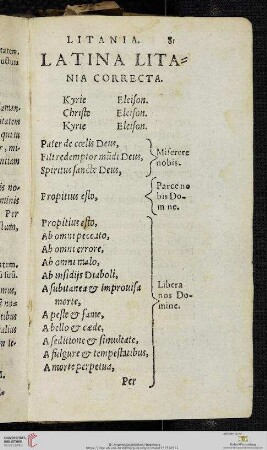 LITANIA. 8
LATINA LITA-
NIA CORRECTA.
Kyrie Eleison.
Christe Eleison.
Kyrie Eleison.
Pater de cœlis Deus,
Fili redemptor mūdi Deus,
Spiritus sancte Deus,
Miserere
nobis.
Propitius esto,
Parce no
bis Do-
mine.
Propitius esto,
Ab omni peccato,
Ab omni errore,
Ab omni malo,
Ab insidijs Diaboli,
A subitanea & improuisa
morte,
A peste & fame,
A bello & cæde,
A seditione & simultate,
A fulgure & tempestatibus,
A morte perpetua,
Libera
nos Do-
mine.
Per